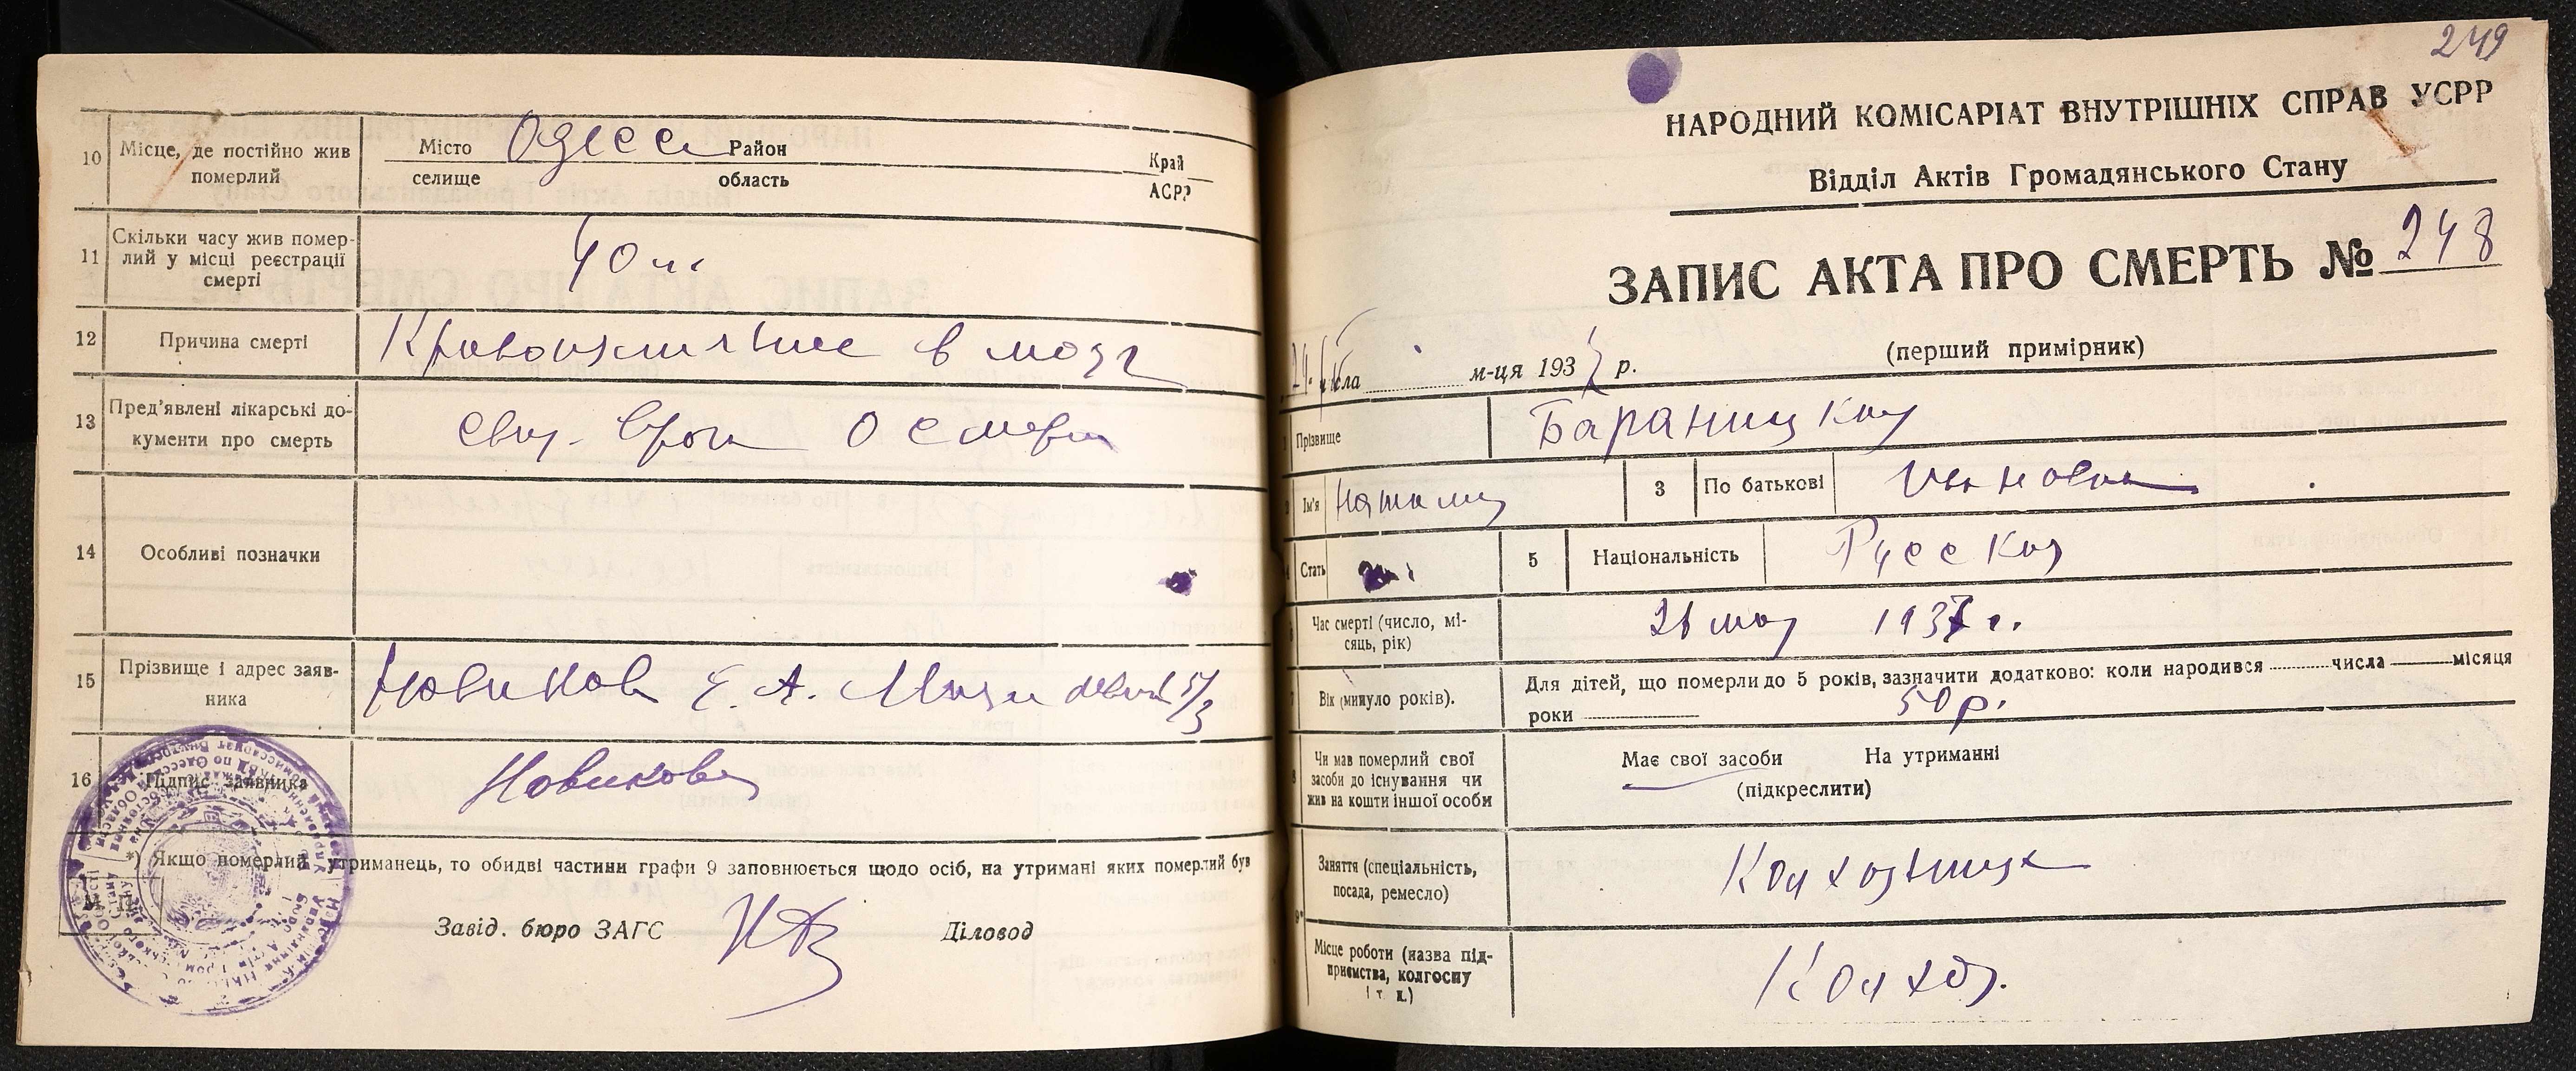 10 Місце, де постійно жив померлий
Місто Одесса Район Край
селище область АСРР
11 Скільки часу жив померлий у місці реєстрації смерті
40 л.
12 Причина смерті Кровоизлияние в мозг
13 Пред'явлені лікарські документи про смерть
свид. врач о смерти
14 Особливі позначки
15 Прізвище і адрес заявника Новикова Е. А. 5/3
16 Підпис заявника Новикова
*) Якщо померлий утриманець, то обидві частини графи 9 заповнюється щодо осіб, на утримані яких померлий був
М. П.
Завід. бюро ЗАГС Діловод
249
НАРОДНИЙ КОМІСАРІАТ ВНУТРІШНІХ СПРАВ УСРР
Відділ Актів Громадянського Стану
ЗАПИС АКТА ПРО СМЕРТЬ № 248
(перший примірник)
числа м-ця 1937 р.
Прізвище Бараницкая
Ім'я Наталия 3 По батькові Ивановна
Стать 5 Національність Русская
Час смерті (число, місяць, рік) 21 мая 1937 г.
Вік (минуло років). Для дітей, що померли до 5 років, зазначити додатково: коли народився числа місяця
роки 50 р.
Чи мав померлий свої засоби до існування чи жив на кошти іншої особи
Має свої засоби На утриманні
(підкреслити)
9* Заняття (спеціальність, посада, ремесло) Колхозница
Місце роботи (назва підприємства, колгоспу і т. п.) Колхоз.